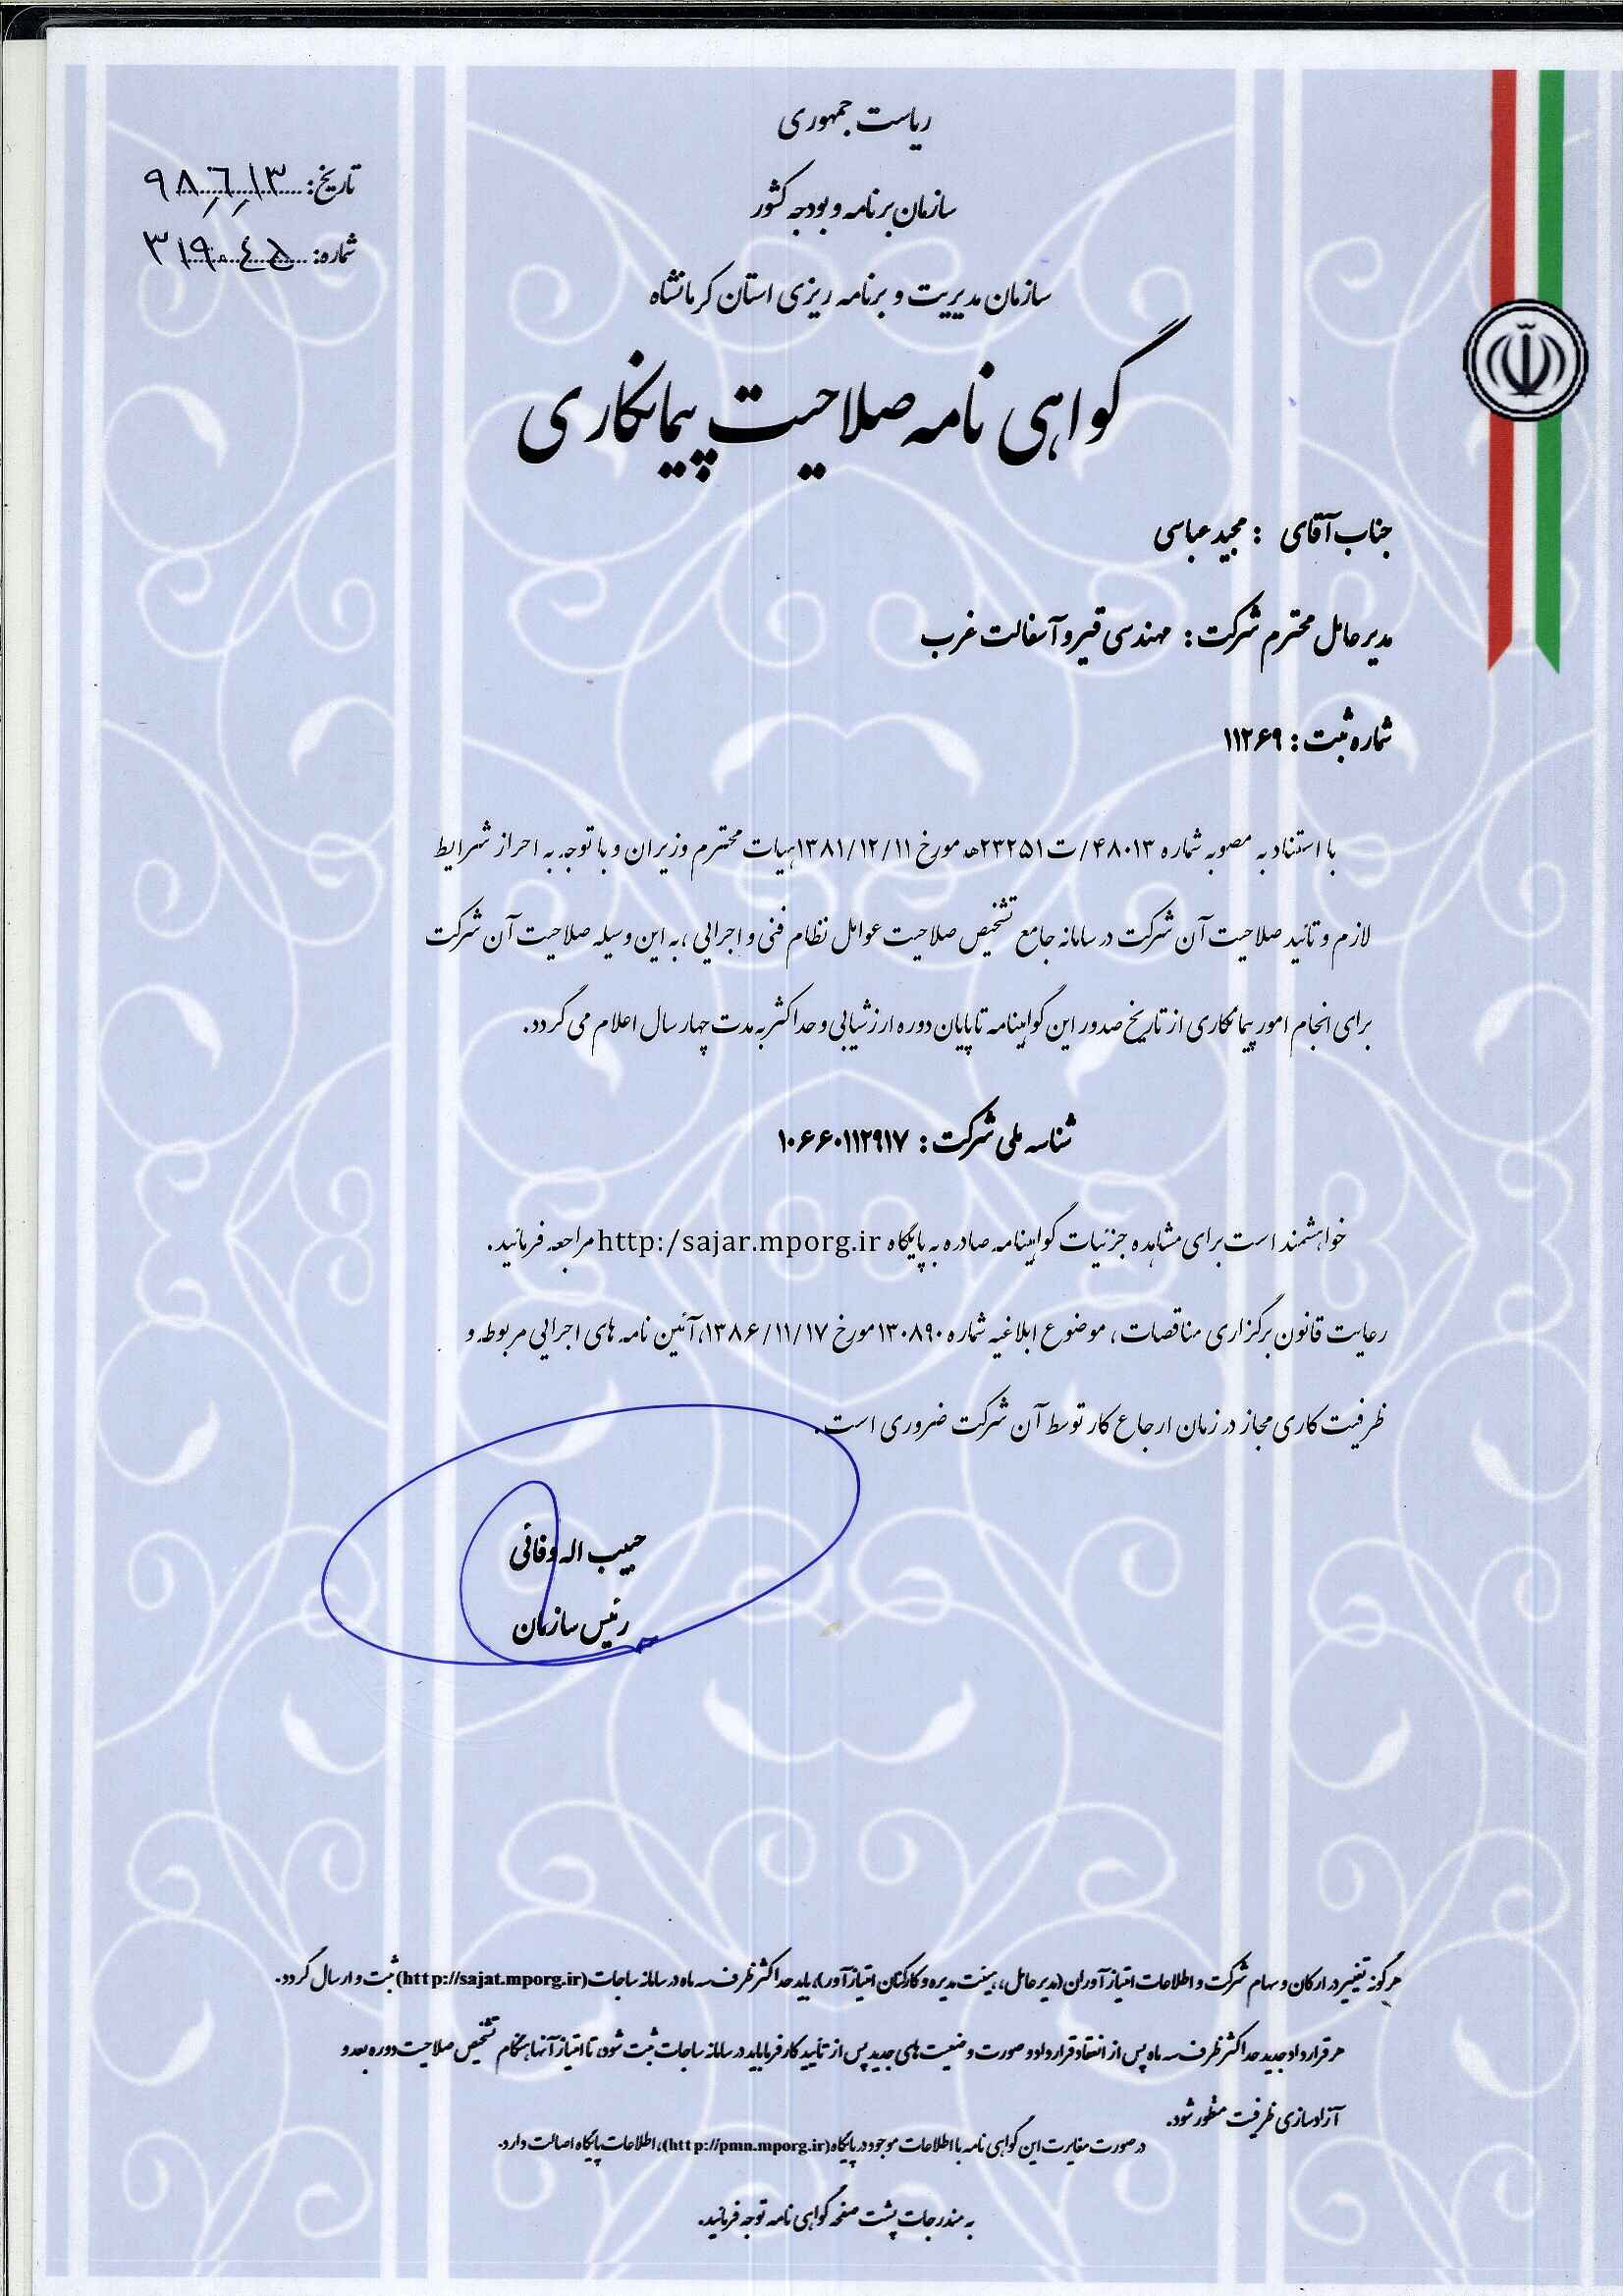 ریاست جمهوری
سازمان برنامه و بودجه کشور
سازمان مدیریت و برنامه ریزی استان کرمانشاه
تاریخ: ۹۸,۶,۱۳
شماره:
گواهی نامه صلاحیت پیمانکاری
جناب آقای : مجید عباسی
مدیرعامل محترم شرکت : مهندسی قیر و آسفالت غرب
شماره ثبت : ۱۱۲۶۹
با استناد به مصوبه شماره ۴۸۰۱۳/ت۲۳۲۵۱هـ مورخ ۱۳۸۱/۱۲/۱۱هیات محترم وزیران و با توجه به احراز شرایط
لازم و تائید صلاحیت آن شرکت در سامانه جامع تشخیص صلاحیت عوامل نظام فنی و اجرایی ، به این وسیله صلاحیت آن شرکت
برای انجام امور پیمانکاری از تاریخ صدور این گواهینامه تا پایان دوره ارزشیابی و حداکثر به مدت چهار سال اعلام می گردد.
شناسه ملی شرکت : ۱۰۶۶۰۱۱۲۹۱۷
خواهشمند است برای مشاهده جزئیات گواهینامه صادره به پایگاه http:/sajar.mporg.ir مراجعه فرمائید.
رعایت قانون برگزاری مناقصات ، موضوع ابلاغیه شماره ۱۳۰۸۹۰ مورخ ۱۳۸۶/۱۱/۱۷،آئین نامه های اجرایی مربوطه و
ظرفیت کاری مجاز در زمان ارجاع کار توسط آن شرکت ضروری است.
حبیب اله وفائی
رئیس سازمان
هر گونه تغییر در ارکان و سهام شرکت و اطلاعات امتیاز آوران (مدیر عامل، ، هیئت مدیره و کارکنان امتیاز آور)، باید حداکثر ظرف سه ماه در سامانه ساجات (http://sajat.mporg.ir) ثبت و ارسال گردد.
هر قرارداد جدید حداکثر ظرف سه ماه پس از انعقاد قرارداد و صورت وضعیت های جدید پس از تأیید کارفرما باید در سامانه ساجات ثبت شود، تا امتیاز آنها هنگام تشخیص صلاحیت دوره بعد و
آزادسازی ظرفیت منظور شود.
در صورت مغایرت این گواهی نامه با اطلاعات موجود در پایگاه (http://pmn.mporg.ir)، اطلاعات پایگاه اصالت دارد.
به مندرجات پشت صفحه گواهی نامه توجه فرمائید.